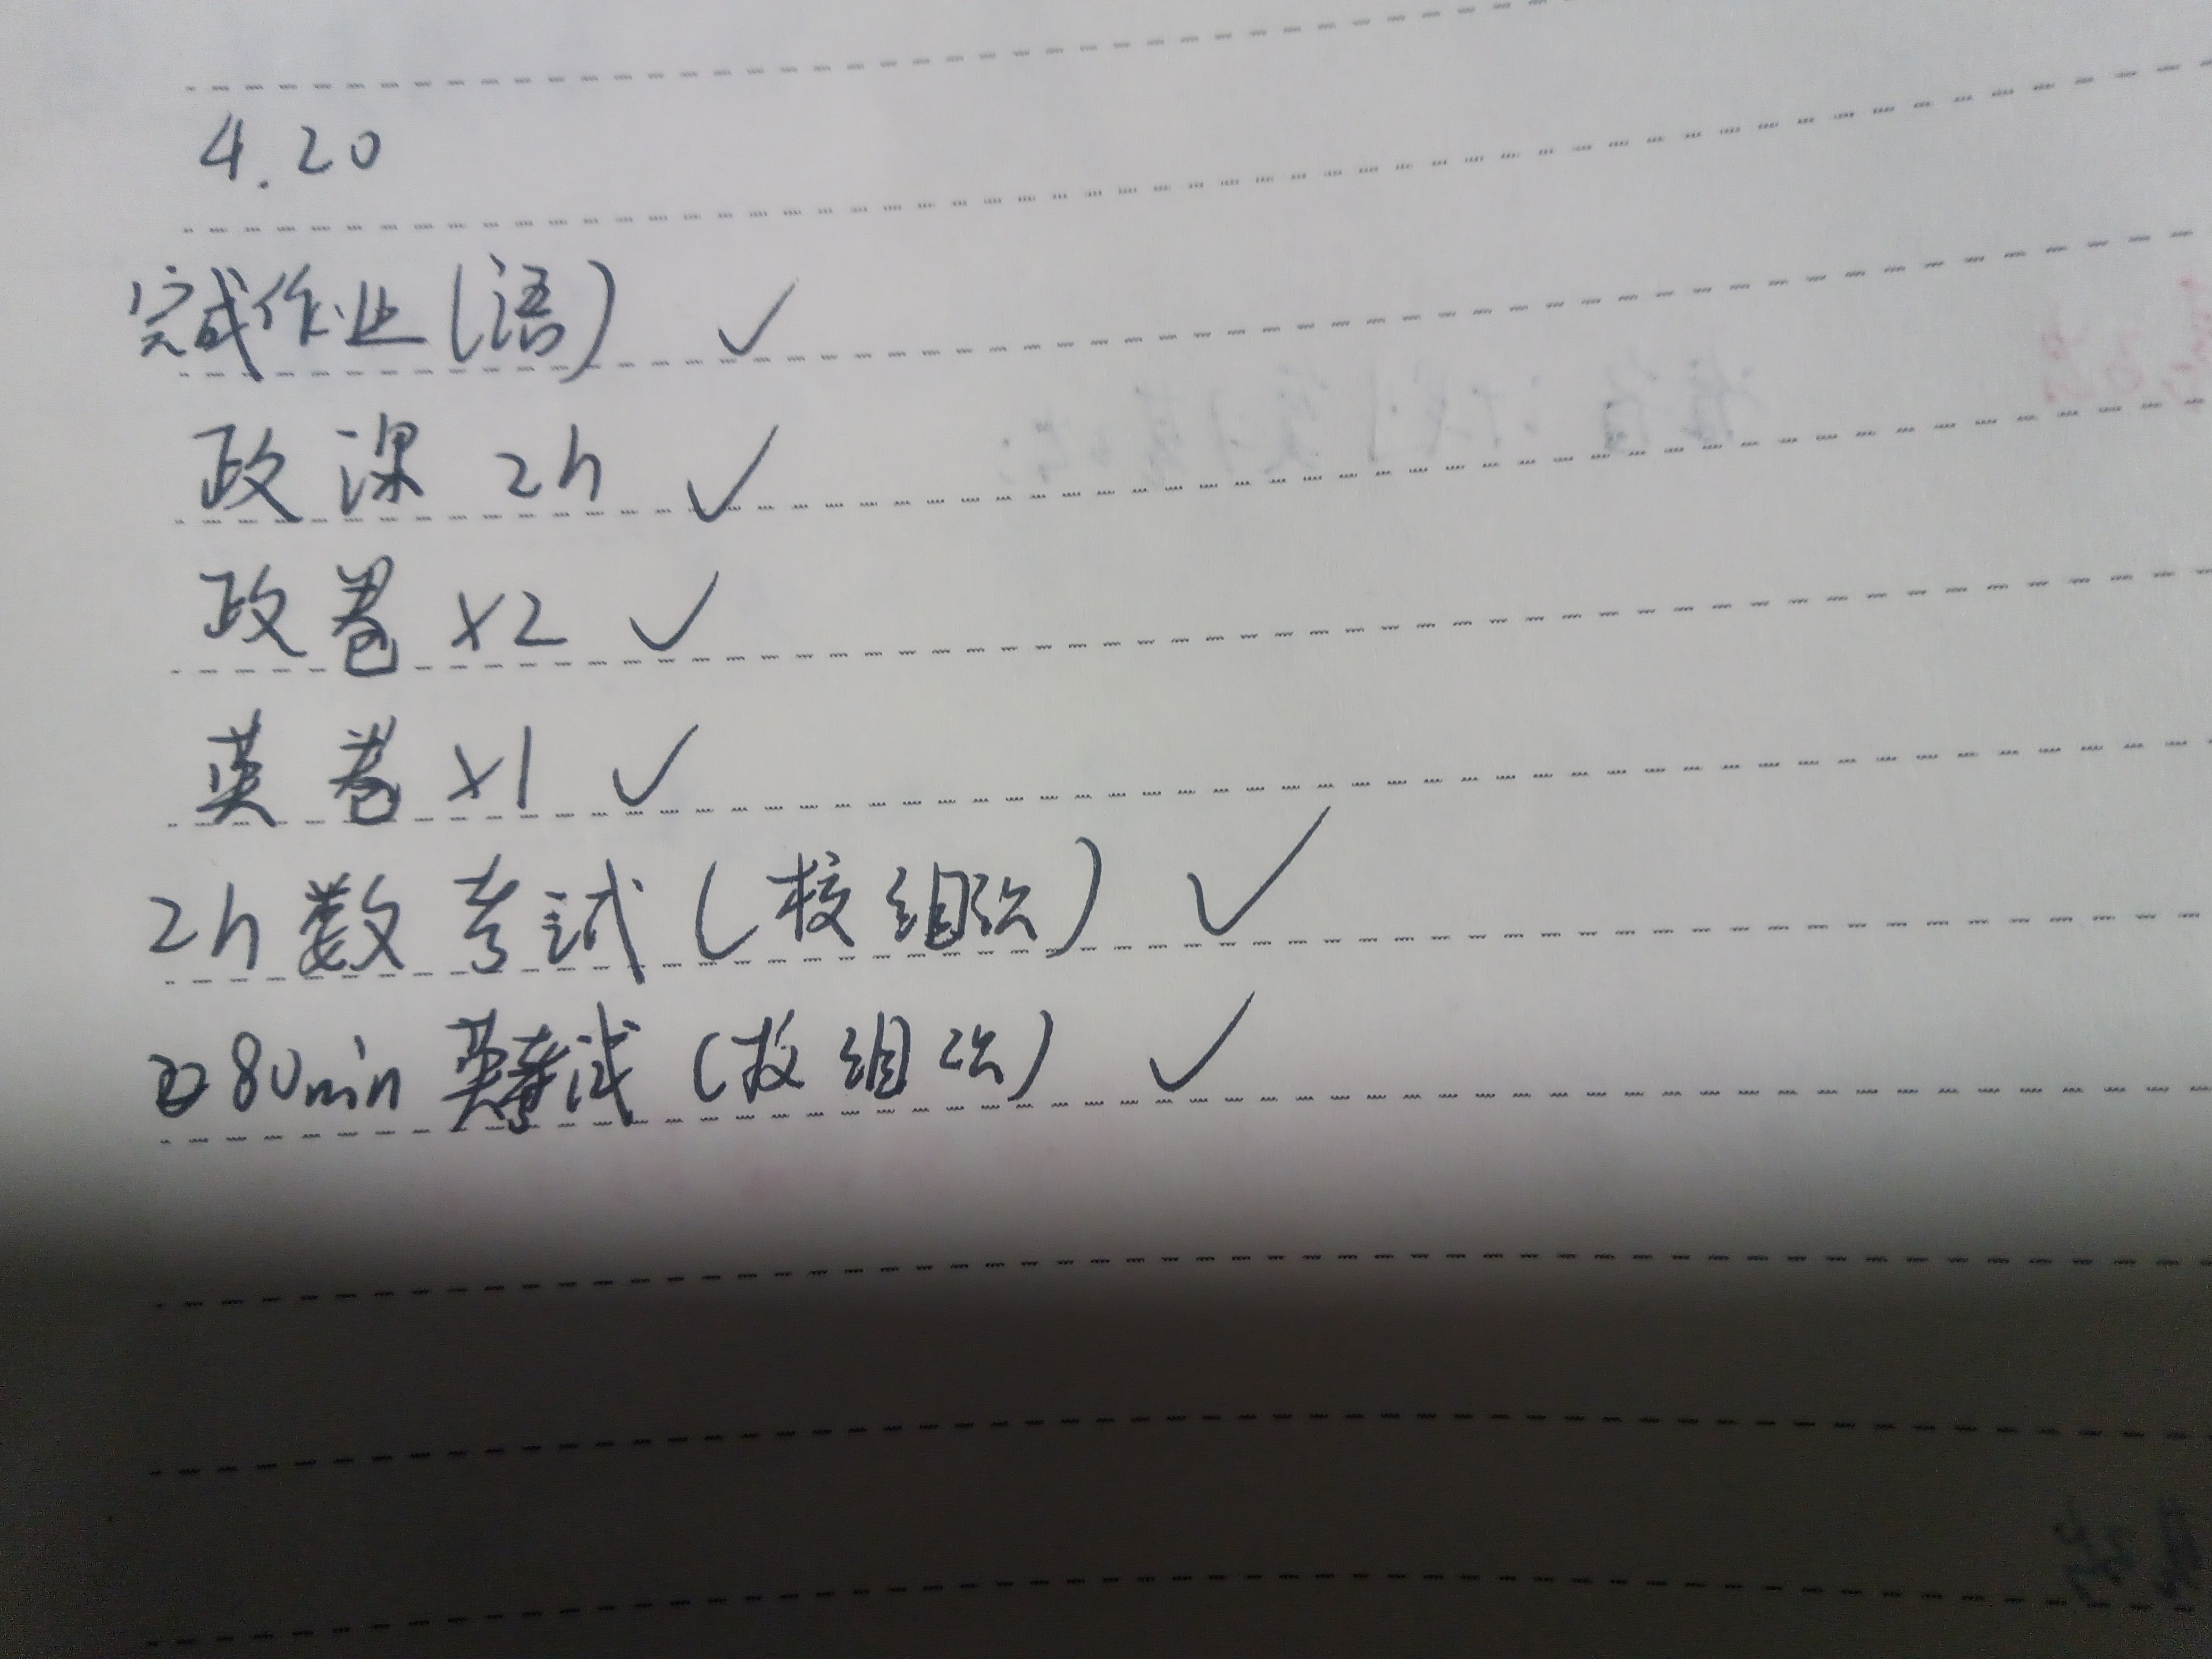 4.20
完成作业(语) ✓
政课 2h ✓
政卷 x2 ✓
英卷 x1 ✓
2h 数考试(校组织) ✓
80min 英考试(校组织) ✓